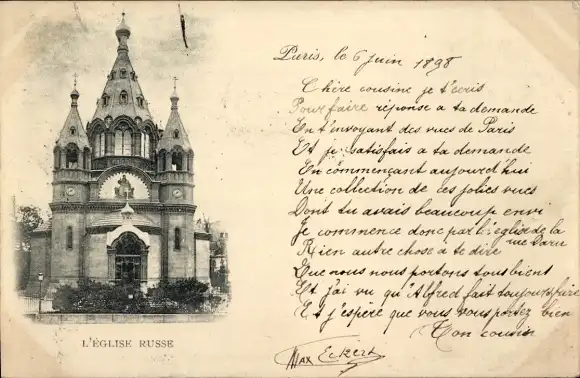 Paris, le 6 juin 1898
Chère cousine je t'ecris
Pour faire réponse a ta demande
En t'envoyant des vues de Paris
Et je satisfais a ta demande
En commençant aujourd'hui
Une collection de ces jolies vues
Dont tu avais beaucoup envi
Je commence donc par l'eglise de la
rue Daru
Rien autre chose a te dire
Que nous nous portons tous bient
Et j'ai vu qu'Alfred fait toujours faire
Et j'espère que vous vous portez bien
Ton cousin
Max Eckert
L'ÉGLISE RUSSE